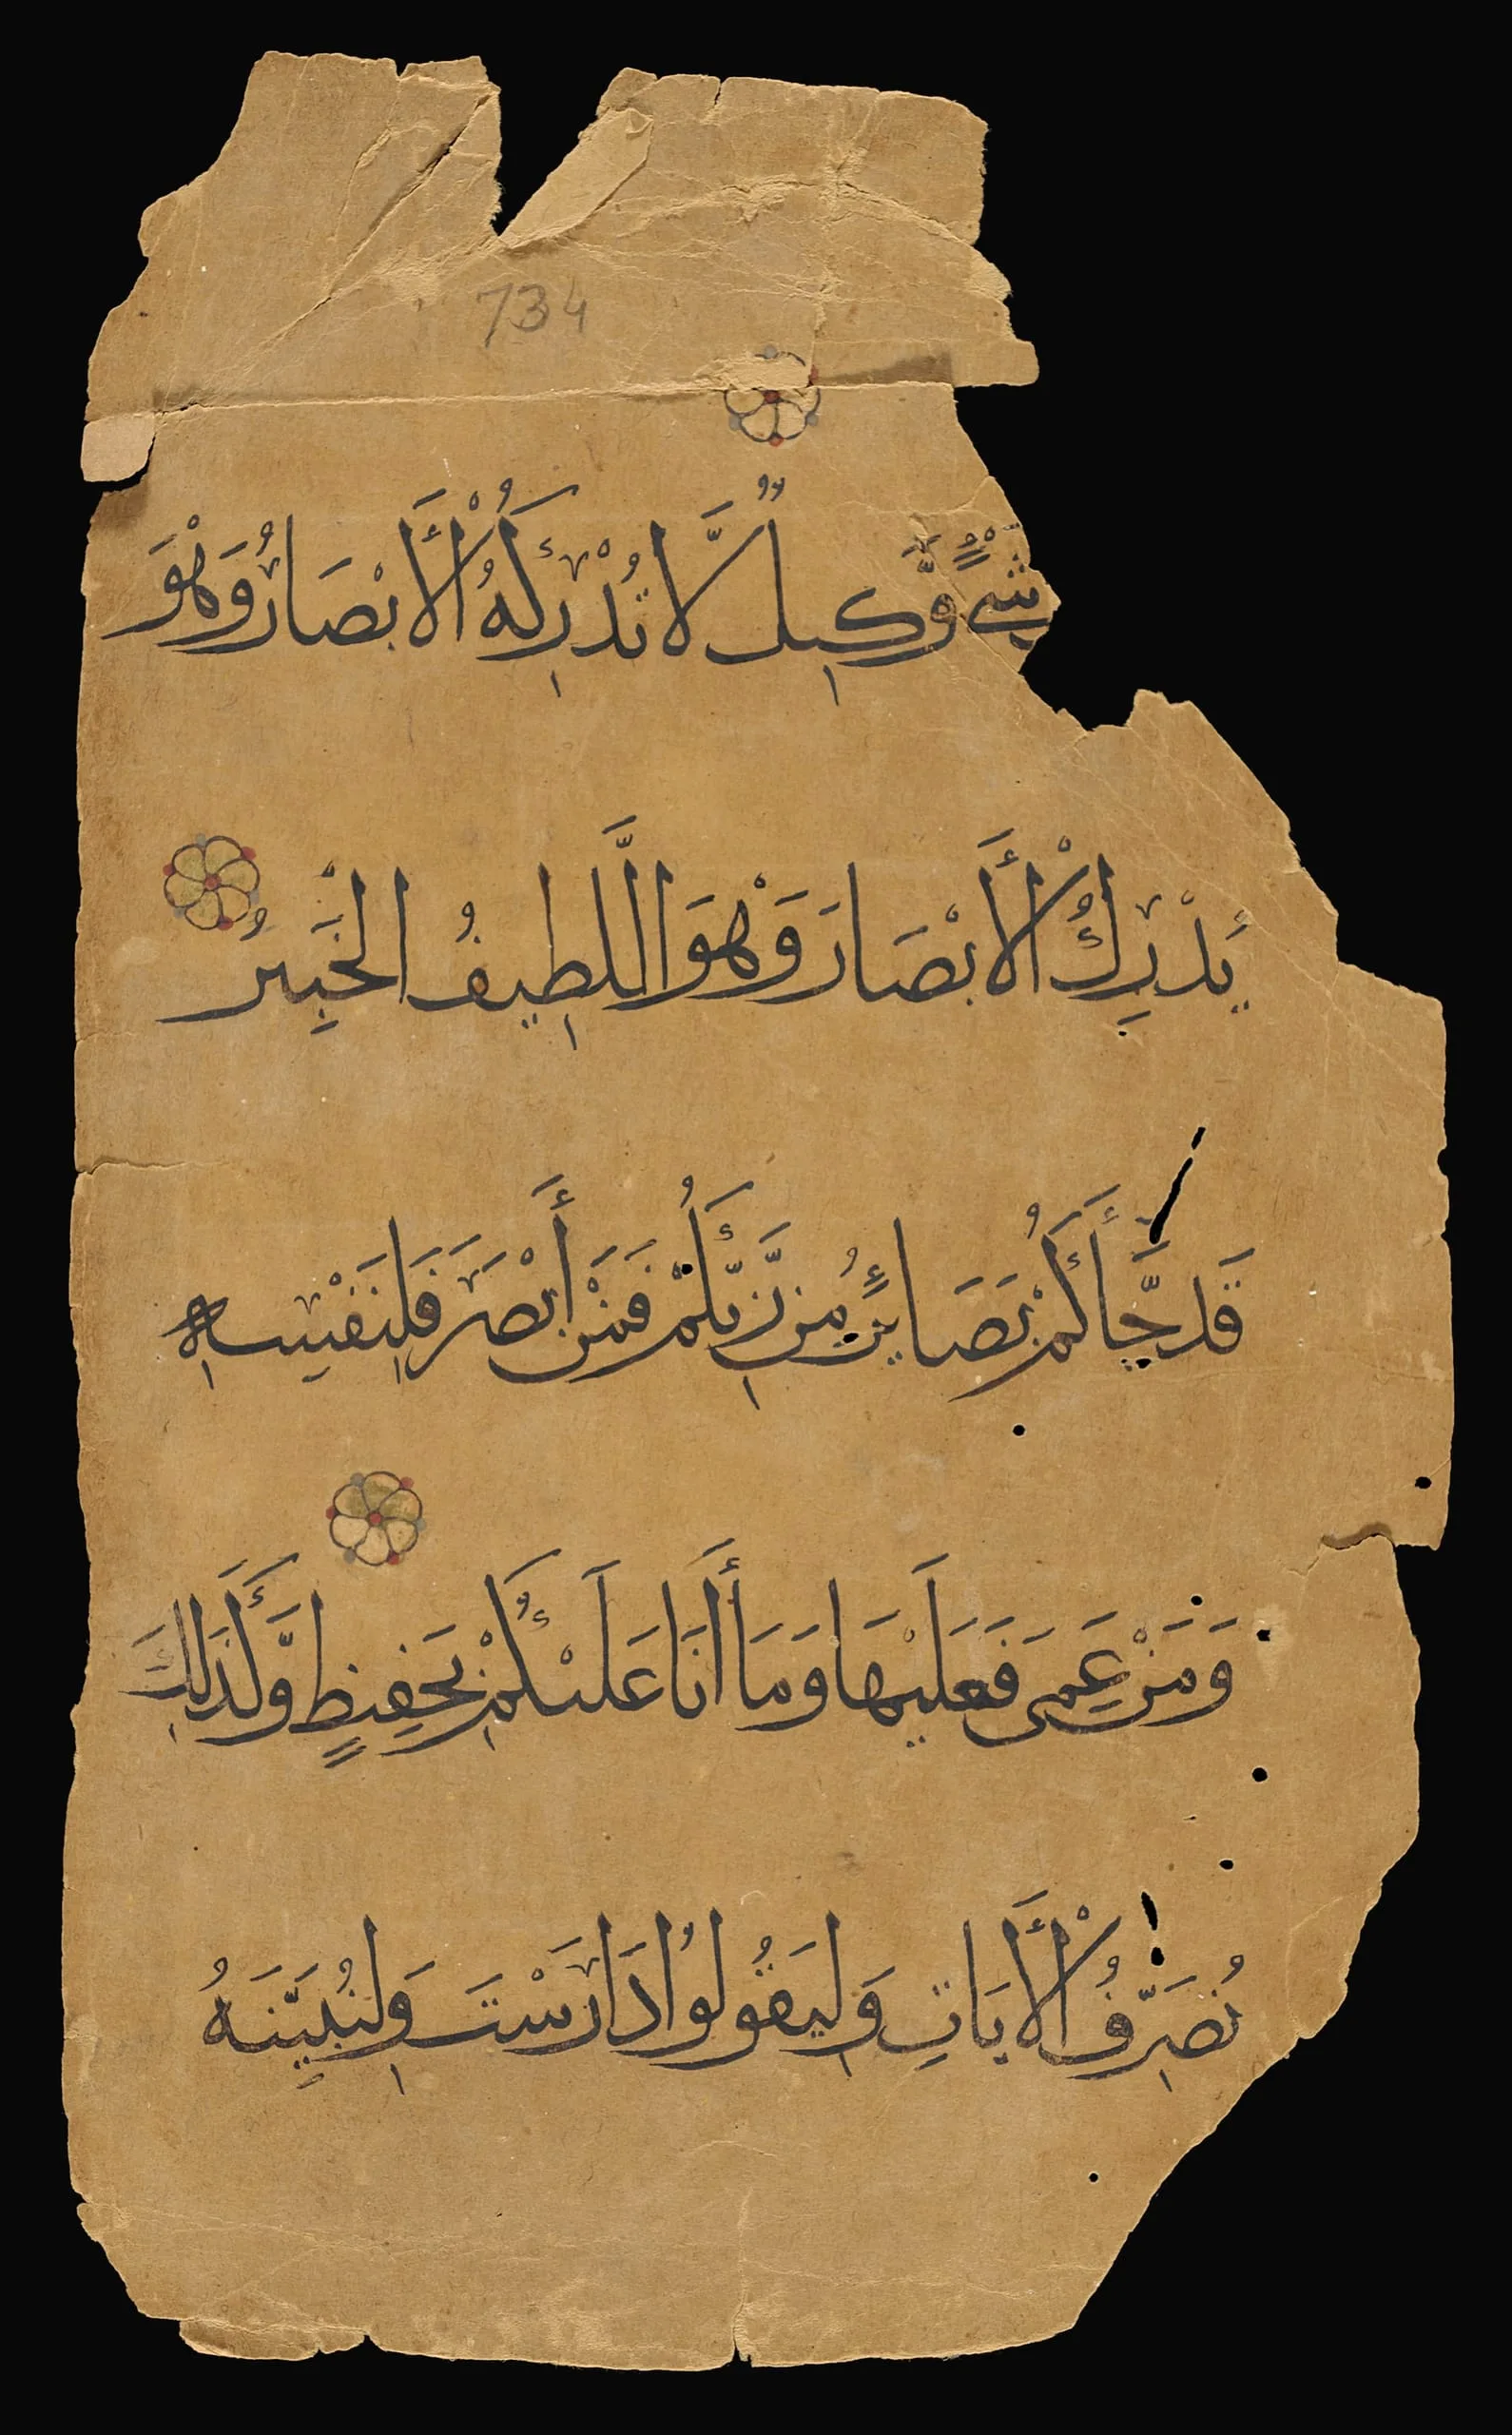 734
شَيْءٍ وَّكِيلٌ لَّا تُدْرِكُهُ الْأَبْصَارُ وَهْوَ
يُدْرِكُ الْأَبْصَارَ وَهْوَ اللَّطِيفُ الْخَبِيرُ
قَد جَّاءَكُمْ بَصَائِرُ مِن رَّبِّكُمْ فَمَنْ أَبْصَرَ فَلِنَفْسِهِ
وَمَنْ عَمِيَ فَعَلَيْهَا وَمَا أَنَا عَلَيْكُمْ بِحَفِيظٍ وَّكَذَلِكَ
نُصَرِّفُ الْأَيَاتِ وَلِيَقُولُوا دَارَسْتَ وَلِنُبَيِّنَهُ